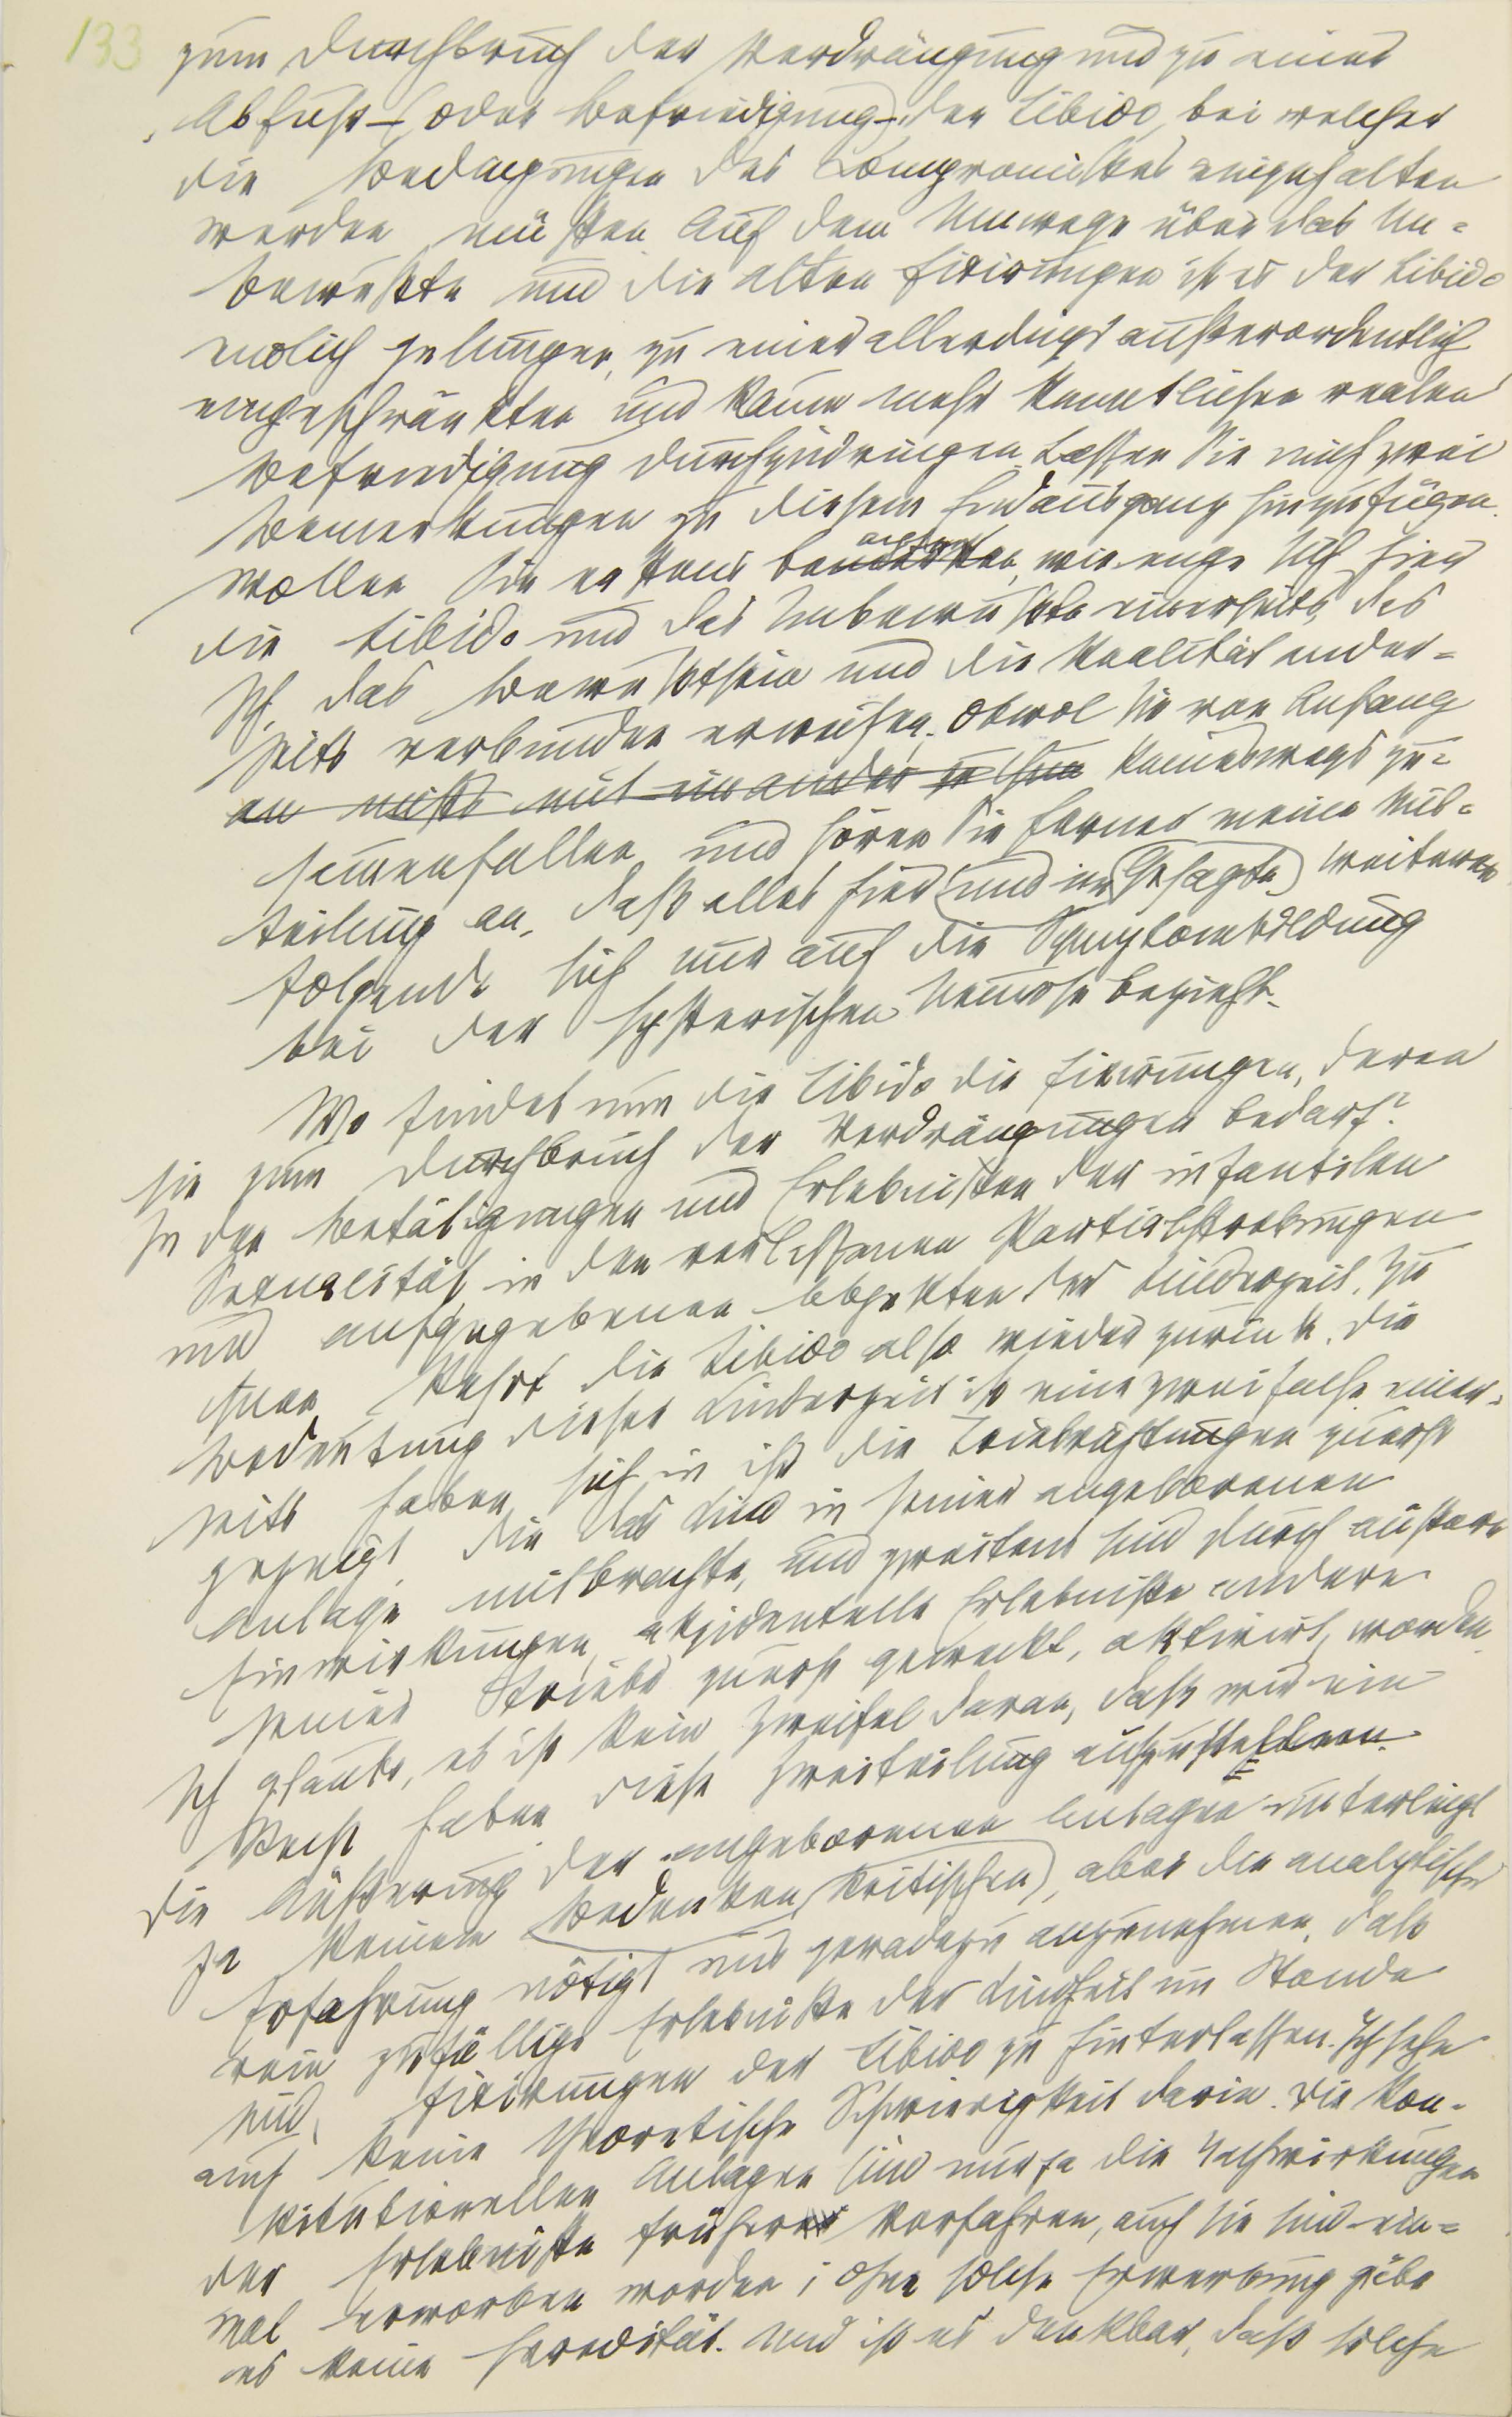 133
zum Durchbruch der Verdrängung und zu einer
Abfuhr – (oder Befriedigung –) der Libido, bei welcher
die Bedingungen des Kompromisses eingehalten
werden müssen. Auf dem Umwege über das Un-
bewußte und die alten Fixirungen ist es der Libido
endlich gelungen, zu einer allerdings außerordentlich
eingeschränkten und kaum mehr kenntlichen realen
Befriedigung durchzudringen. Lassen Sie mich zwei
Bemerkungen zu diesem Endausgang hinzufügen.
Wollen Sie erstens beachten, wie enge sich hier
die Libido und das Unbewußte einerseits, das
Ich, das Bewußtsein und die Realität ander-
seits verbunden erweisen, obwol sie von Anfang
an nichts mit einander zu thun keineswegs zu-
sammenfallen, und hören Sie ferner meine Mit-
teilung an, daß alles hier (und im Gesagte) weiteren
folgende sich nur auf die Symptombildung
bei der hysterischen Neurose bezieht.
Wo findet nun die Libido die Fixirungen, deren
sie zum Durchbruch der Verdrängungen bedarf?
In den Betätigungen und Erlebnissen der infantilen
Sexualität, in den verlassenen Partialstrebungen
und aufgegebenen Objekten der Kinderzeit. Zu
ihnen kehrt die Libido also wieder zurück. Die
Bedeutung dieser Kinderzeit ist eine zweifache, einer-
seits haben sich in ihr die Triebrichtungen zuerst
gezeigt, die das Kind in seiner angeborenen
Anlage mitbrachte, und zweitens sind durch äußere
Einwirkungen, akzidentelle Erlebnisse andere
seiner Triebe zuerst geweckt, aktivirt, worden.
Ich glaube, es ist kein Zweifel daran, daß wir ein
Recht haben diese Zweiteilung aufzustellen.
Die Äußerung der angeborenen Anlagen unterliegt
ja keinem Bedenken (kritischen), aber die analytische
Erfahrung nötigt uns geradezu anzunehmen, daß
rein zufällige Erlebnisse der Kindheit im Stande
sind, Fixirungen der Libido zu hinterlassen. Ich sehe
auch keine theoretische Schwierigkeit darin. Die kon-
stitutionellen Anlagen sind nur ja die Nachwirkungen
der Erlebnisse früherer Vorfahren, auch sie sind ein-
mal erworben worden; ohne solche Erwerbung gäbe
es keine Heredität. Und ist es denkbar, daß solche